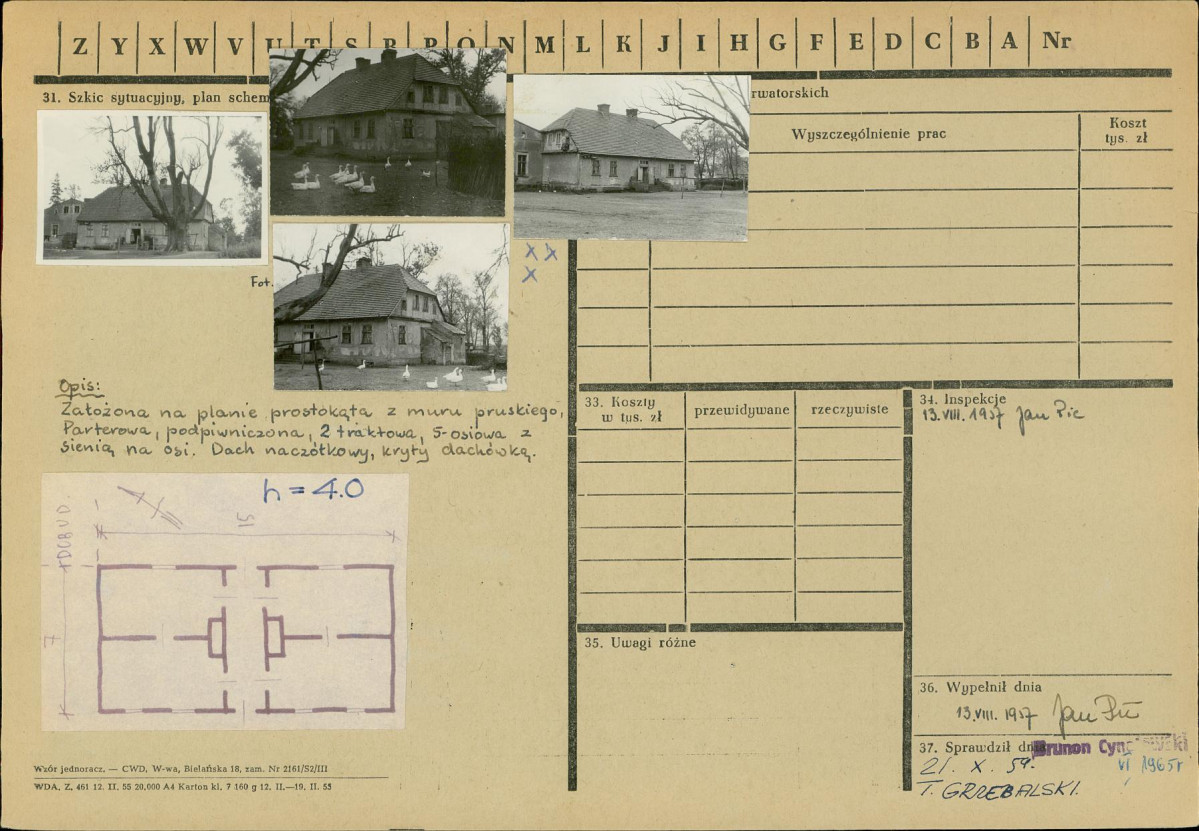 Z Y X W V U T S R P O N M L K J I H G F E D C B A Nr
31. Szkic sytuacyjny, plan schem
rwatorskich
Wyszczególnienie prac
Koszt
tys. zł
X X
X
Fot.
Opis:
Założona na planie prostokąta z muru pruskiego,
Parterowa, podpiwniczona, 2 traktowa, 5-osiowa z
sienią na osi. Dach naczółkowy, kryty dachówką.
h = 4.0
15
7
33. Koszty
w tys. zł
przewidywane
rzeczywiste
34. Inspekcje
13.VIII. 1957 Jan Pic
35. Uwagi różne
36. Wypełnił dnia
13.VIII. 1957 Jan Pic
37. Sprawdził dnia
Brunon
VI 1965r
21. X. 59.
T. GRZEBALSKI.
Wzór jednoracz. — CWD, W-wa, Bielańska 18, zam. Nr 2161/S2/III
WDA. Z. 461 12. II. 55 20.000 A4 Karton kl. 7 160 g 12. II.—19. II. 55